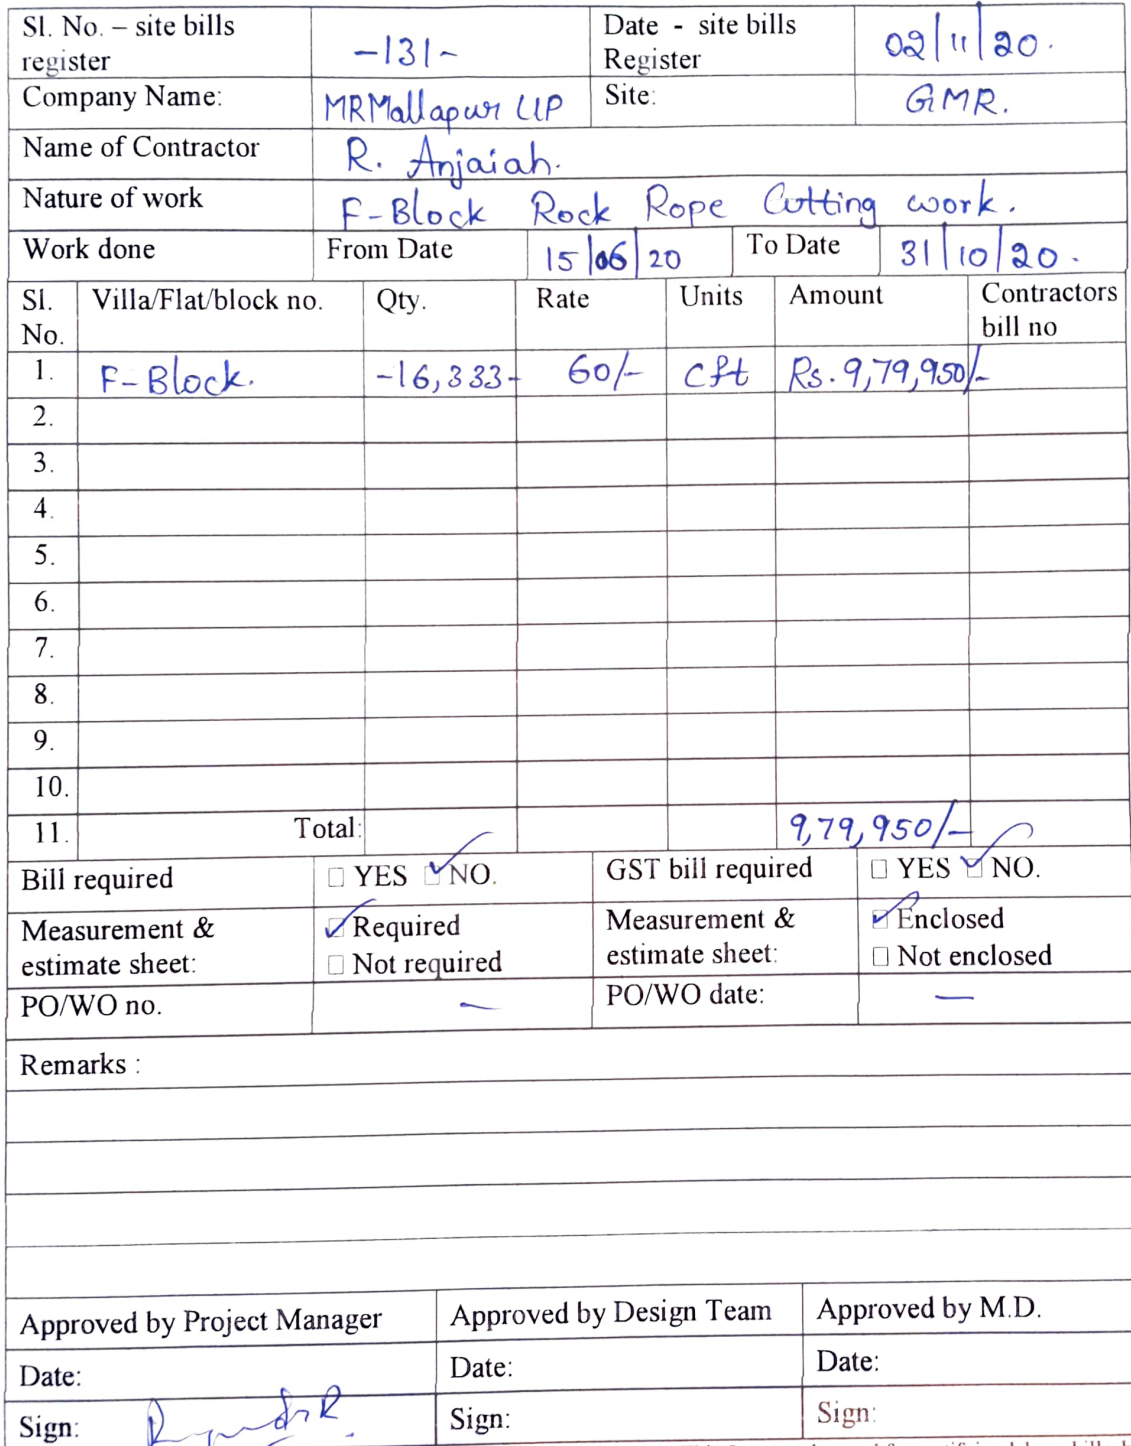 Sl. No. – site bills register -131- Date - site bills Register 02/11/20.
Company Name: MRMallapur LLP Site: GMR.
Name of Contractor R. Anjaiah.
Nature of work F-Block Rock Rope Cutting work.
Work done From Date 15/06/20 To Date 31/10/20.
Sl. No. Villa/Flat/block no. Qty. Rate Units Amount Contractors bill no
1. F-Block. -16,333- 60/- cft Rs. 9,79,950/-
2.
3.
4.
5.
6.
7.
8.
9.
10.
11. Total: 9,79,950/-
Bill required □ YES ☑ NO. GST bill required □ YES ☑ NO.
Measurement & estimate sheet: ☑ Required □ Not required Measurement & estimate sheet: ☑ Enclosed □ Not enclosed
PO/WO no. – PO/WO date: –
Remarks :
Approved by Project Manager Approved by Design Team Approved by M.D.
Date: Date: Date:
Sign: Sign: Sign: